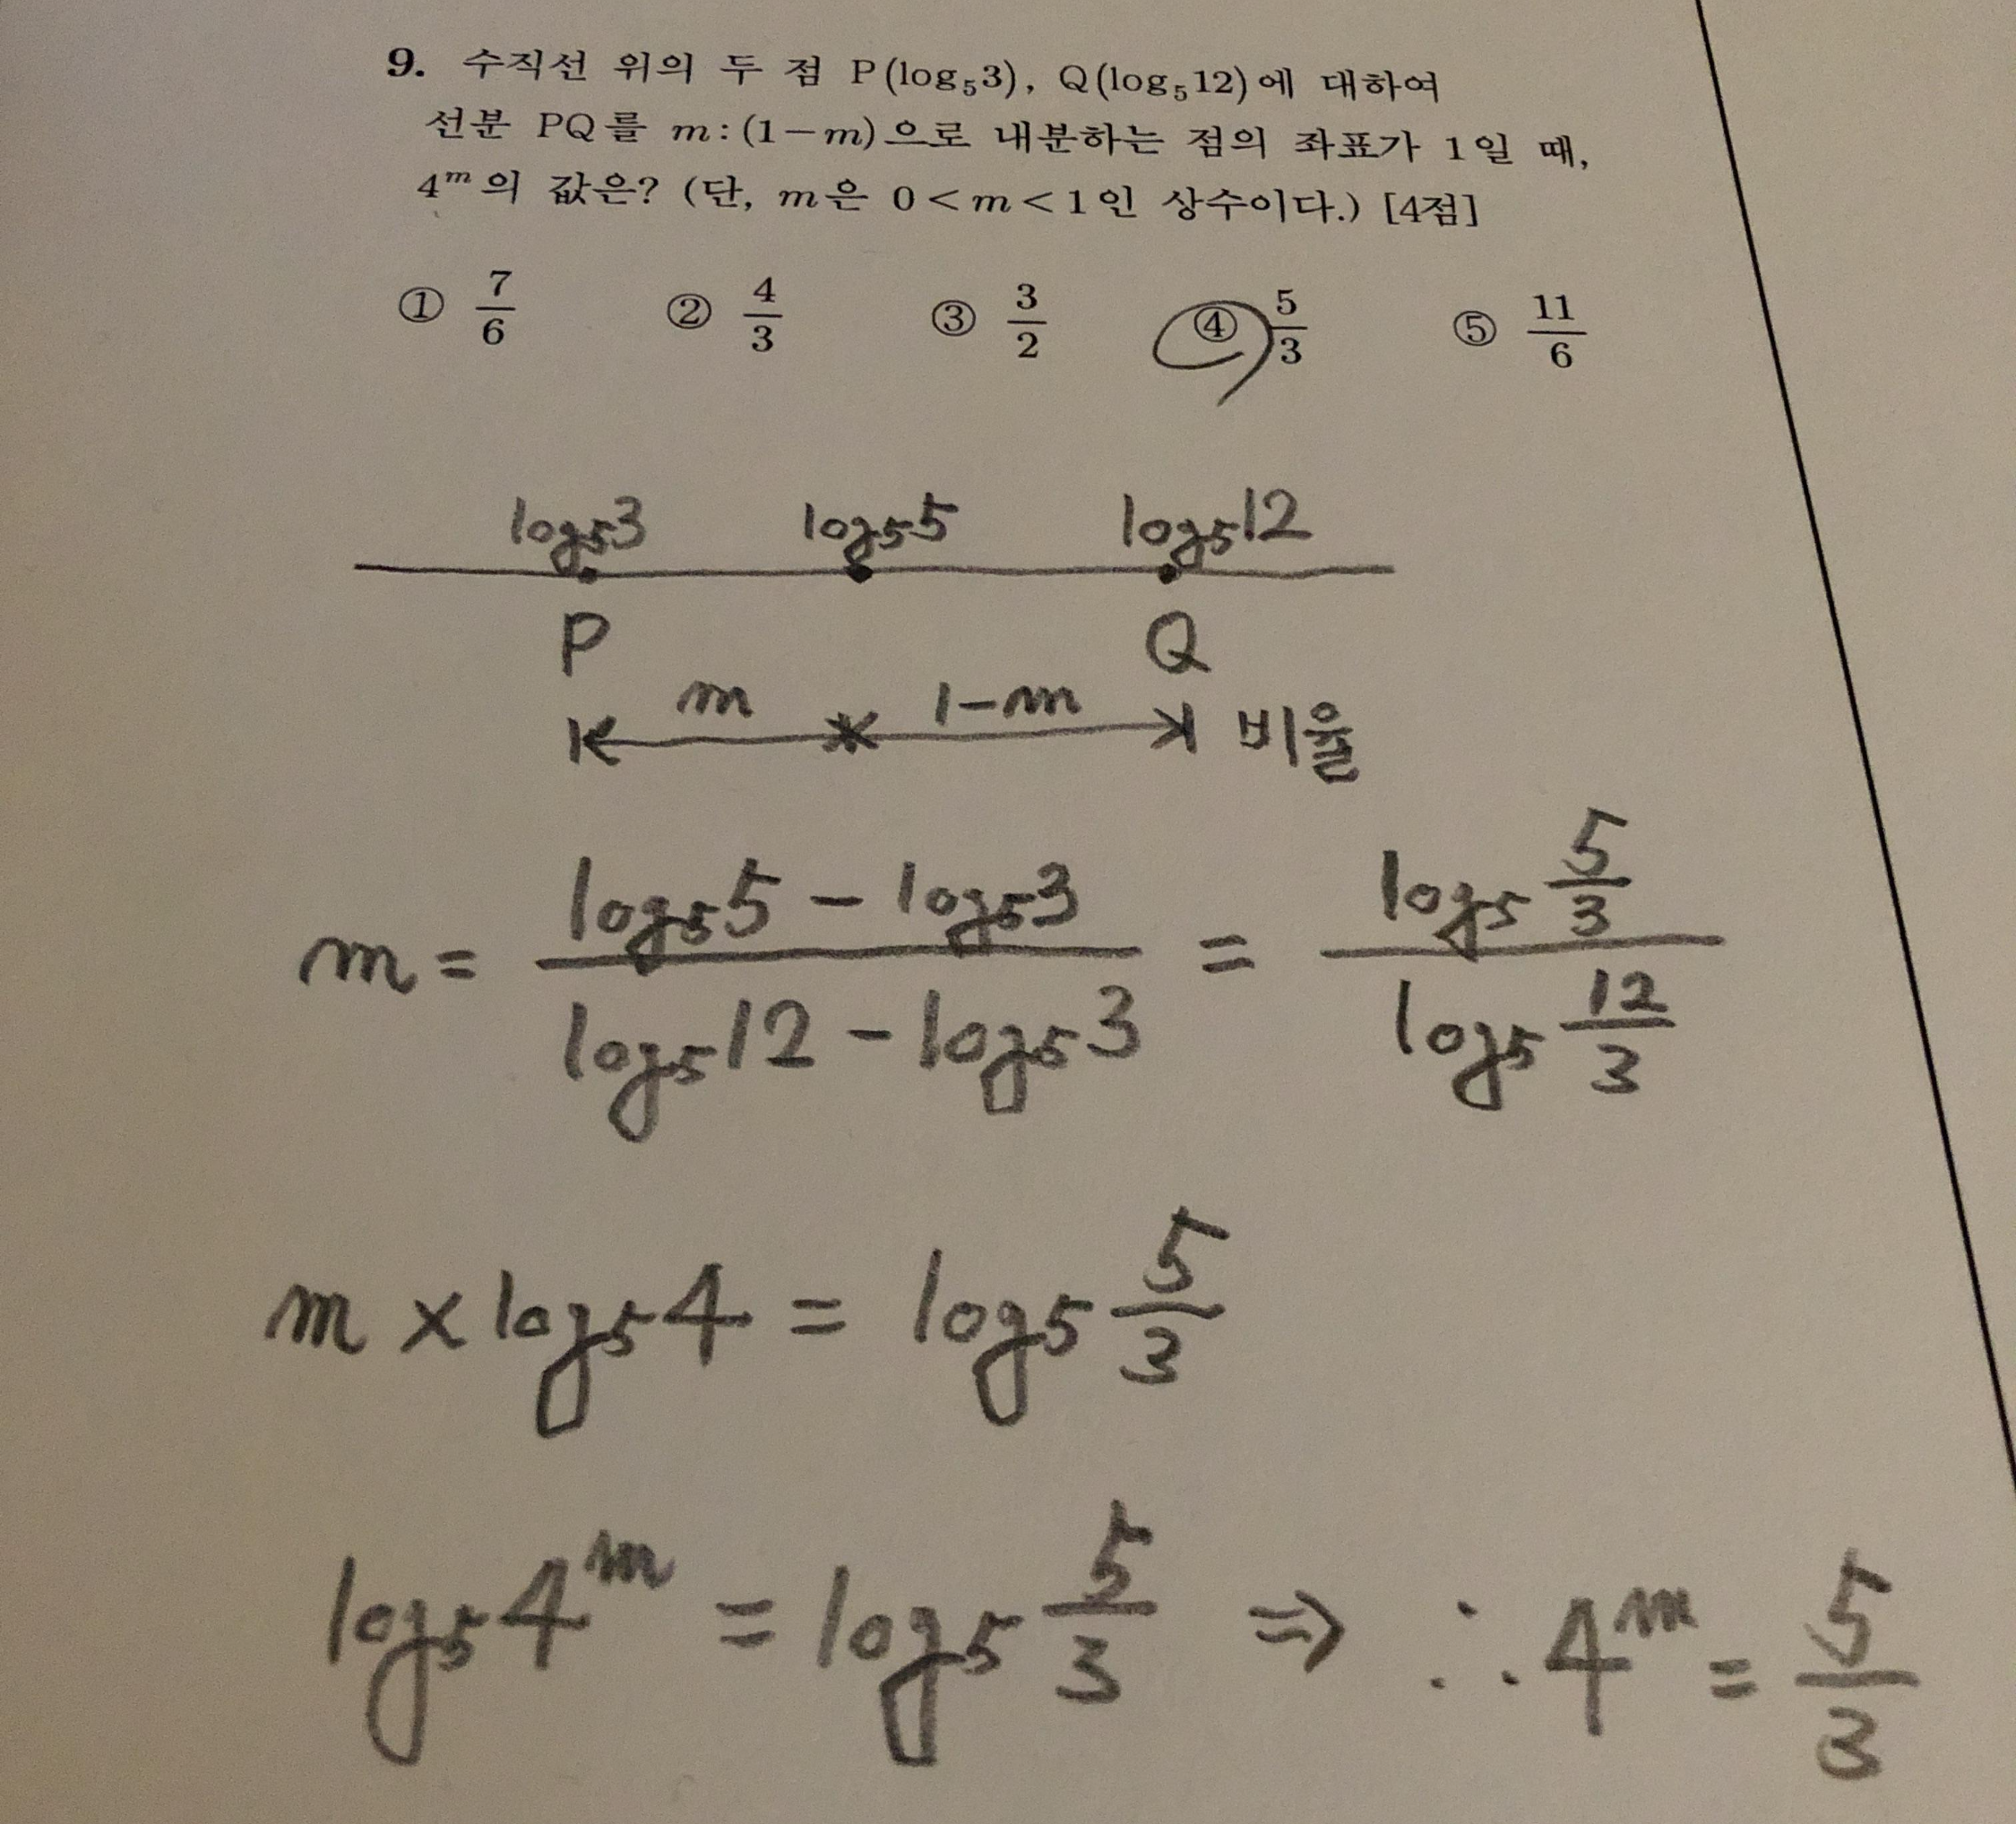 9. 수직선 위의 두 점 P(log₅3), Q(log₅12)에 대하여
선분 PQ를 m:(1−m)으로 내분하는 점의 좌표가 1일 때,
4ᵐ의 값은? (단, m은 0<m<1인 상수이다.) [4점]
① 7/6 ② 4/3 ③ 3/2 ④ 5/3 ⑤ 11/6
log₅3 log₅5 log₅12
P Q
m 1−m 비율
m = (log₅5 − log₅3)/(log₅12 − log₅3) = (log₅ 5/3)/(log₅ 12/3)
m × log₅4 = log₅ 5/3
log₅4ᵐ = log₅ 5/3 ⇒ ∴ 4ᵐ = 5/3